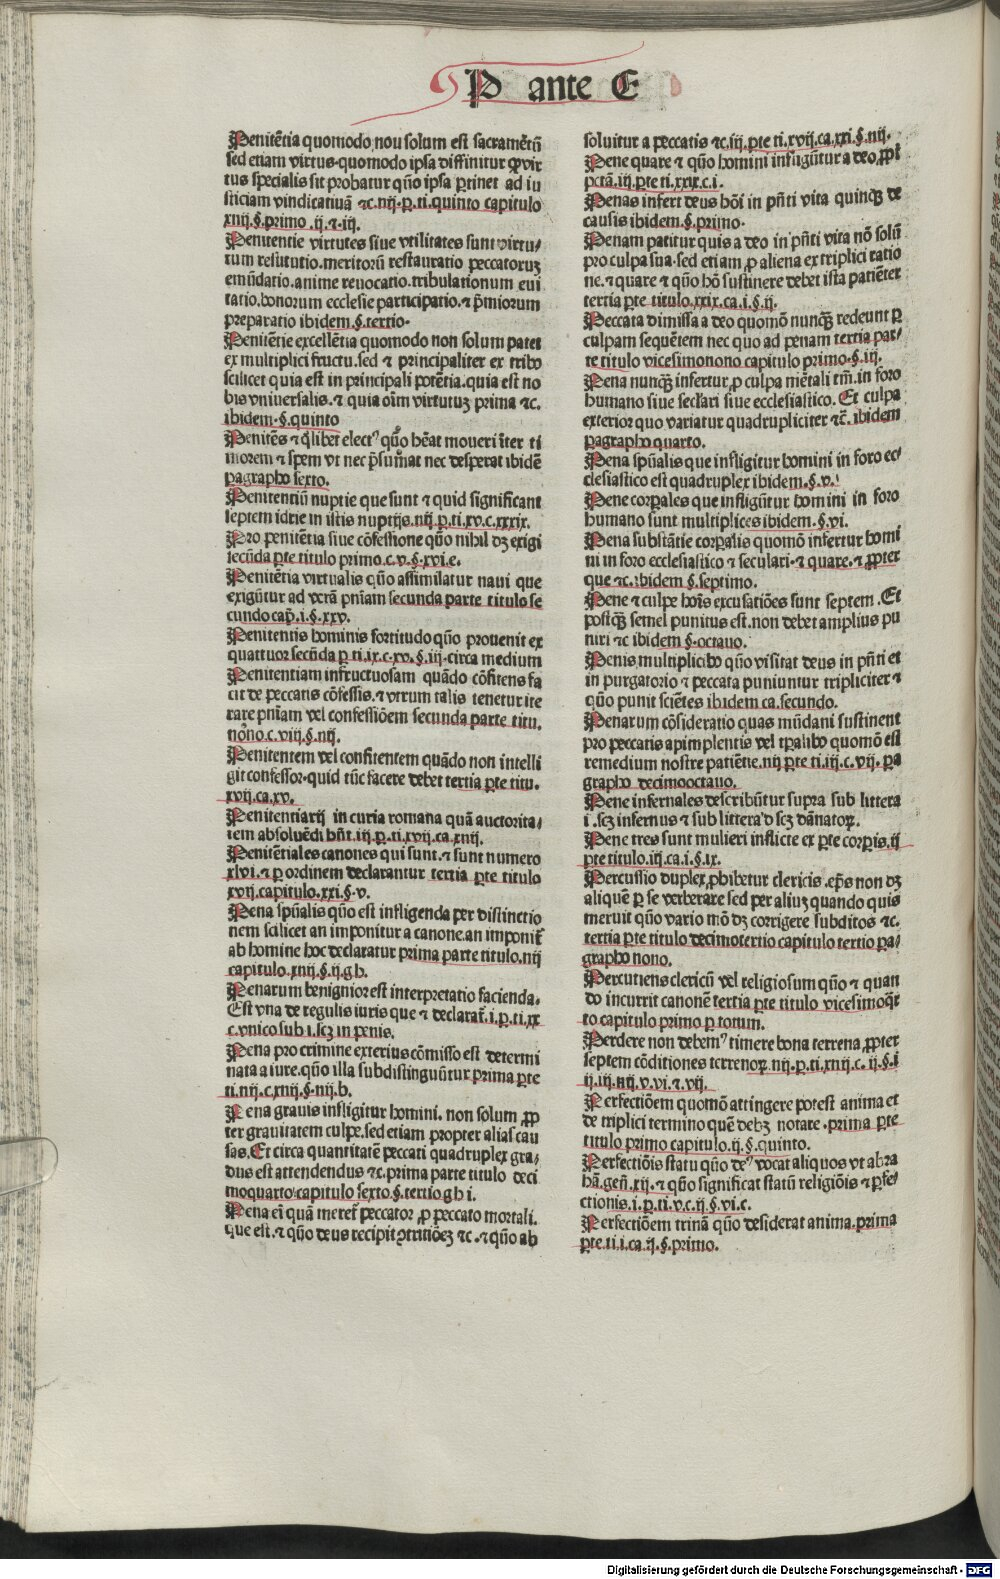 P ante E
Penitētia quomodo nou solum est sacramētū
sed etiam virtus·quomodo ipsa diffinitur ꝙ vir
tus specialis sit probatur quō ipsa ꝑtinet ad iu
sticiam vindicatiuā ⁊c.iiij.ꝑ.ti.quinto capitulo
xiiij.§.primo .ij.⁊.iij.
Penitentie virtutes siue vtilitates sunt virtu/
tum restitutio.meritorū restauratio peccatorum
emūdatio.anime reuocatio.tribulationum eui
tatio.bonorum ecclesie participatio.⁊ p̄miorum
preparatio ibidem.§.tertio·
Penitētie excellētia quomodo non solum patet
ex multiplici fructu.sed ⁊ principaliter ex tribꝰ
scilicet quia est in principali potētia.quia est no
bis vniuersalis.⁊ quia oīm virtutuꝫ prima ⁊c.
ibidem·§.quinto
Penitēs ⁊ q̄libet electꝰ quō hēat moueri īter ti
morem ⁊ spem vt nec p̄sumat nec desperat ibidē
ꝑagrapho sexto.
Penitentiū nuptie que sunt ⁊ quid significant
septem idrie in istis nuptijs.iiij.ꝑ.ti.xv.c.xxxix.
Pro penitētia siue cōfessione quō nihil dꝫ exigi
secūda ꝑte titulo primo.c.v.§.xvi.e.
Penitētia virtualis quō assimilatur naui que
exigūtur ad verā pniam secunda parte titulo se
cundo cap̄.i.§.xxv.
Penitentis hominis fortitudo quō prouenit ex
quattuor secūda ꝑ ti.ix.c.xv.§.iij·circa medium
Penitentiam infructuosam quādo cōfitens fa
cit de peccatis cōfessis.⁊ vtrum talis tenetur ite
rare pniam vel confessiōem secunda parte titu.
nōno.c.viij.§.iiij.
Penitentem vel confitentem quādo non intelli
git confessor·quid tūc facere debet tertia ꝑte titu.
xvij.ca.xv.
Penitentiarij in curia romana quā auctorita/
tem absoluēdi hn̄t.iij.ꝑ.ti.xvij.ca.xiiij.
Penitētiales canones qui sunt.⁊ sunt numero
xlvi.⁊ ꝑ ordinem declarantur tertia ꝑte titulo
xvij.capitulo.xxi.§.v.
Pena spūalis quō est infligenda per distinctio
nem scilicet an imponitur a canone.an imponit̄
ab homine hoc declaratur prima parte titulo.iiij
capitulo.xiiij.§.ij.g h.
Penarum benignior est interpretatio facienda.
Est vna de regulis iuris que ⁊ declarat̄.i.ꝑ.ti.xx
c.vnico sub i.scꝫ in penis.
Pena pro crimine exterius cōmisso est determi
nata a iure.quō illa subdistinguūtur prima ꝑte
ti.iiij.c.xiiij.§.iiij.b.
Pena grauis infligitur homini. non solum ꝓp
ter grauitatem culpe.sed etiam propter alias cau
sas.Et circa quantitatē peccati quadruplex gra/
dus est attendendus ⁊c.prima parte titulo deci
moquarto·capitulo sexto.§.tertio g h i.
Pena ei quā meret̄ peccator ꝓ peccato mortali.
que est.⁊ quō deus recipit ꝯtritiōeꝫ ⁊c.⁊ quō ab
soluitur a peccatis ⁊c.iij.ꝑte ti.xvij.ca.xxi.§.iiij.
Pene quare ⁊ quō homini infligūtur a deo.ꝓp̄
pctā.iij.ꝑte ti.xxix.c.i.
Penas infert deus hōi in pn̄ti vita quinqꝫ de
causis ibidem.§.primo.
Penam patitur quis a deo in pn̄ti vita nō solū
pro culpa sua·sed etiam ꝓ aliena ex triplici ratio
ne.⁊ quare ⁊ quō hō sustinere debet ista patiēter
tertia ꝑte titulo.xxix.ca.i.§.ij.
Peccata dimissa a deo quomō nunqꝫ redeunt ꝑ
culpam sequētem nec quo ad penam tertia par/
te titulo vicesimonono capitulo primo·§.iij.
Pena nunqꝫ infertur ꝓ culpa mētali tm̄.in foro
humano siue seclari siue ecclesiastico. Et culpa
exterior quo variatur quadrupliciter ⁊c̄.ibidem
ꝑagrapho quarto.
Pena spūalis que infligitur homini in foro ec/
clesiastico est quadruplex ibidem.§.v.
Pene corꝑales que infligūtur homini in foro
humano sunt multiplices ibidem.§.vi.
Pena substātie corꝑalis quomō infertur homi
ni in foro ecclesiastico ⁊ seculari·⁊ quare.⁊ ꝓpter
que ⁊c.ibidem §.septimo.
Pene ⁊ culpe hoīs excusatiōes sunt septem .Et
postqꝫ semel punitus est.non debet amplius pu
niri ⁊c ibidem §.octauo.
Penis multiplicibꝰ quō visitat deus in pn̄ti et
in purgatorio ⁊ peccata puniuntur tripliciter ⁊
quō punit sciētes ibidem ca.secundo.
Penarum cōsideratio quas mūdani sustinent
pro peccatis apimplentis vel tꝑalibꝰ quomō est
remedium nostre patiētie.iiij ꝑte ti.iij.c.vij. ꝑa
grapho decimooctauo.
Pene infernales describūtur supra sub littera
i .scꝫ infernus ⁊ sub littera d scꝫ dānatoꝝ.
Pene tres sunt mulieri inflicte ex ꝑte corꝑis.ij
ꝑte titulo.iij.ca.i.§.ix.
Percussio duplex ꝓhibetur clericis .ep̄s non dꝫ
aliquē ꝑ se verberare sed per aliuꝫ quando quis
meruit quō vario mō dꝫ corrigere subditos ⁊c.
tertia ꝑte titulo decimotertio capitulo tertio ꝑa/
grapho nono.
Percutiens clericū vel religiosum quō ⁊ quan
do incurrit canonē tertia ꝑte titulo vicesimoq̄r
to capitulo primo ꝑ totum.
Perdere non debemꝰ timere bona terrena ꝓpter
septem cōditiones terrenoꝝ.iiij.ꝑ.ti.xiiij.c. ij.§.i
ij.iij.iiij.v.vi.⁊.vij.
Perfectiōem quomō attingere potest anima et
de triplici termino quē debꝫ notare .prima ꝑte
titulo primo capitulo.ij.§.quinto.
Perfectiōis statu quō deꝰ vocat aliquos vt abra
hā.geñ.xij.⁊ quō significat statū religiōis ⁊ ꝑfe/
ctionis.i.ꝑ.ti.v.c.ij.§.vi.c.
Perfectiōem trinā quō desiderat anima.prima
ꝑte.ti.i.ca.ij.§.primo.
Digitalisierung gefördert durch die Deutsche Forschungsgemeinschaft - DFG